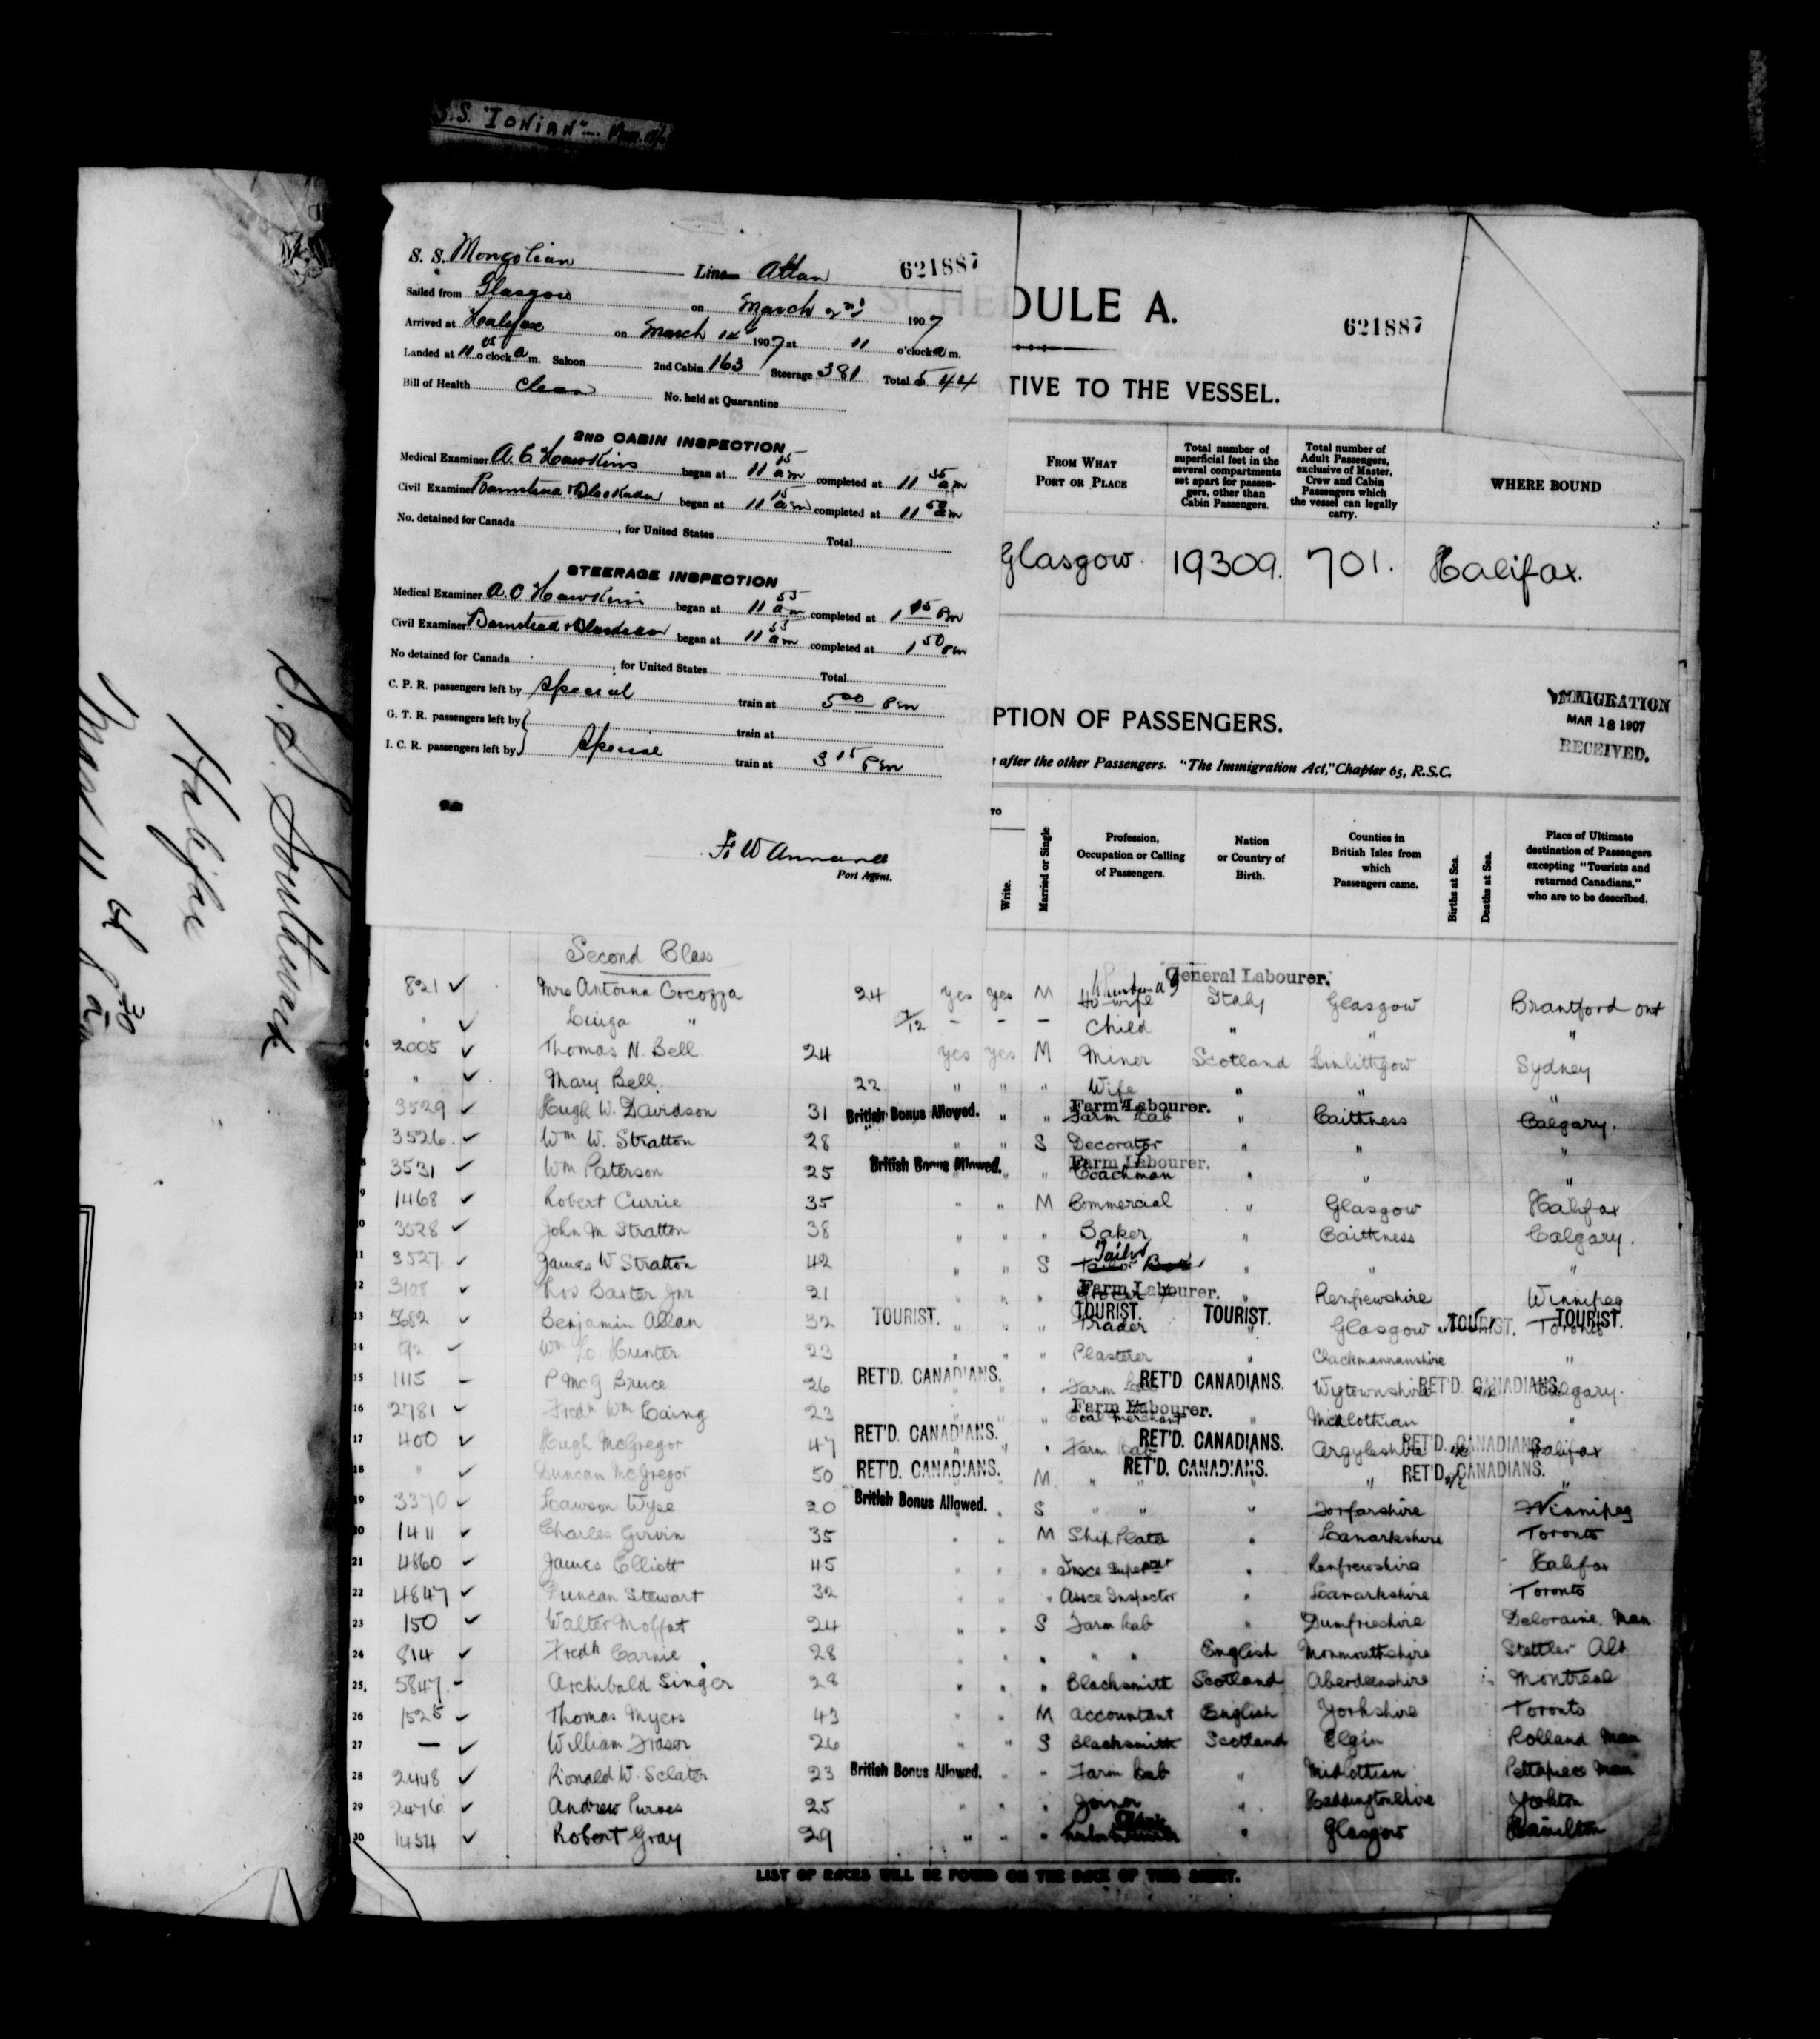 S.S. "IONIAN"
S. S. Southwark
Halifax
S. S. Mongolian Line Allan 621887
Sailed from Glasgow on March 2nd 1907
Arrived at Halifax on March 14 1907 at 11 o'clock a m.
Landed at 11 05 o'clock a m. Saloon 2nd Cabin 163 Steerage 381 Total 544
Bill of Health clean No. held at Quarantine
2ND CABIN INSPECTION
Medical Examiner Hawkins began at 11 15 am completed at 11 35 am
Civil Examiner began at 11 15 am completed at 11 am
No. detained for Canada , for United States Total
STEERAGE INSPECTION
Medical Examiner Hawkins began at 11 55 am completed at 1 Pm
Civil Examiner began at 11 55 am completed at 1 50 Pm
No detained for Canada , for United States Total
C. P. R. passengers left by Special train at 5 00 Pm
G. T. R. passengers left by train at
I. C. R. passengers left by Special train at 3 15 Pm
Port Agent.
DULE A.
621887
TIVE TO THE VESSEL.
FROM WHAT PORT OR PLACE
Total number of superficial feet in the several compartments set apart for passengers, other than Cabin Passengers.
Total number of Adult Passengers, exclusive of Master, Crew and Cabin Passengers which the vessel can legally carry.
WHERE BOUND
Glasgow. 19309. 701. Halifax.
IMMIGRATION
MAR 18 1907
RECEIVED.
PTION OF PASSENGERS.
after the other Passengers. "The Immigration Act," Chapter 65, R.S.C.
TO
Write.
Married or Single
Profession, Occupation or Calling of Passengers.
Nation or Country of Birth.
Counties in British Isles from which Passengers came.
Births at Sea.
Deaths at Sea.
Place of Ultimate destination of Passengers excepting "Tourists and returned Canadians," who are to be described.
Second Class
General Labourer.
821 ✓ Mrs Antoina Cocozza 24 yes yes M wife Italy Glasgow Brantford Ont
" ✓ Luiga " 7/12 - - - Child " " "
4 2005 ✓ Thomas N. Bell 24 yes yes M Miner Scotland Linlithgow Sydney
5 " ✓ Mary Bell. 22 " " " Wife " " "
3529 ✓ Hugh W. Davidson 31 British Bonus Allowed. " " Farm Labourer. Farm Lab " Caithness Calgary.
3526. ✓ Wm W. Stratton 28 " " S Decorator " " "
8 3531 ✓ Wm Paterson 25 British Bonus Allowed. " " Farm Labourer. Coachman " " "
9 1468 ✓ Robert Currie 35 " " M Commercial " Glasgow Halifax
10 3528 ✓ John M Stratton 38 " " " Baker " Caithness Calgary.
11 3527. ✓ James W Stratton 42 " " S Tailor " " "
12 3108 ✓ Baxter Jnr 21 " " " Farm Labourer. " Renfrewshire Winnipeg
13 5682 ✓ Benjamin Allan 32 TOURIST. " " " TOURIST. Trader TOURIST. " Glasgow TOURIST. Toronto TOURIST.
14 92 ✓ Wm Hunter 23 " " Plasterer " Clackmannanshire "
15 1115 – P McG Bruce 26 RET'D. CANADIANS. " Farm Lab RET'D. CANADIANS. Wigtownshire RET'D. CANADIANS. Calgary.
16 2781 ✓ Fredk Wm Laing 23 " " Farm Labourer. Coal Merchant " Midlothian "
17 400 ✓ Hugh McGregor 47 RET'D. CANADIANS. " " Farm Lab RET'D. CANADIANS. Argyleshire RET'D. CANADIANS. Halifax
18 " ✓ Duncan McGregor 50 RET'D. CANADIANS. M " " RET'D. CANADIANS. " RET'D. CANADIANS. "
19 3370 ✓ Lawson Wyse 20 British Bonus Allowed. " S " " " Forfarshire Winnipeg
20 1411 ✓ Charles Girvin 35 " " M Ship Plater " Lanarkshire Toronto
21 4860 ✓ James Elliott 45 " " " " Renfrewshire Halifax
22 4847 ✓ Duncan Stewart 32 " " " Inspector " Lanarkshire Toronto
23 150 ✓ Walter Moffat 24 " " S Farm Lab " Dumfrieshire Deloraine. Man
24 814 ✓ Fredk Carnie 28 " " " " " English Monmouthshire Stettler Alb
25 5847. – Archibald Singer 28 " " " Blacksmith Scotland Aberdeenshire Montreal
26 1525 ✓ Thomas Myers 43 " " M Accountant English Yorkshire Toronto
27 — ✓ William Fraser 26 " " S Blacksmith Scotland Elgin Rolland Man
28 2448 ✓ Ronald W. Sclater 23 British Bonus Allowed. " " Farm Lab " Midlothian Man
29 2476 ✓ Andrew Purves 25 " " " Joiner " Haddingtonshire Yorkton
30 1454 ✓ Robert Gray 29 " " " " Glasgow Hamilton
LIST OF RACES WILL BE FOUND ON THE BACK OF THIS SHEET.